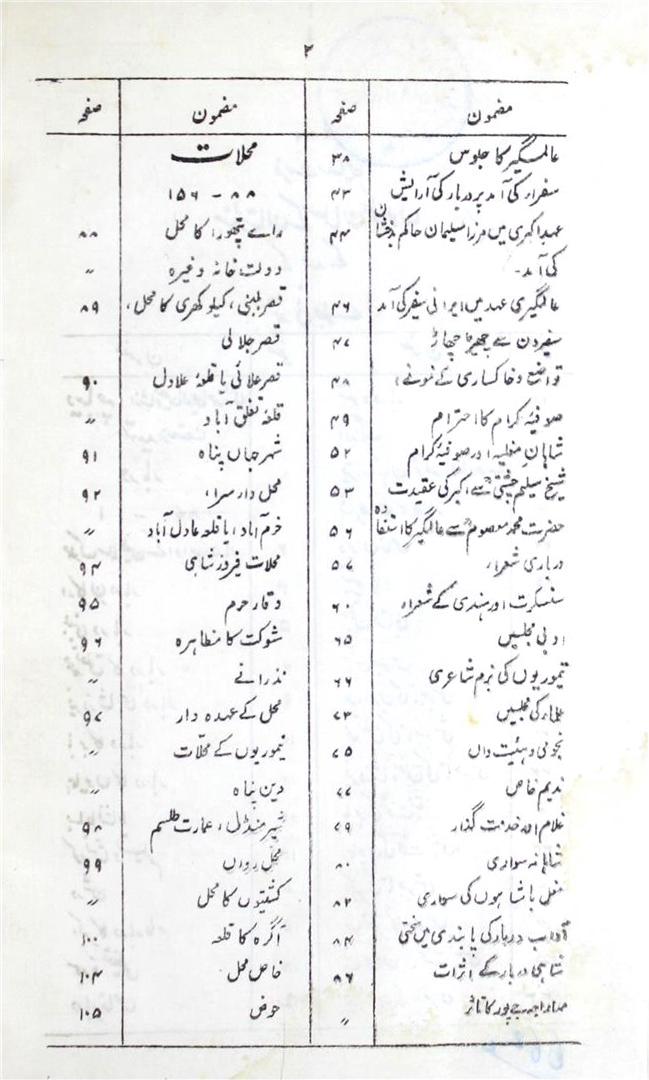 ۲
مضمون صفحہ
عالمگیر کا جلوس ۳۸
سفراء کی آمد پر دربار کی آرایش ۴۳
عہد اکبری میں مرزا سلیمان حاکم بدخشان ۴۴
کی آمد۔
عالمگیری عہد میں ایرانی سفیر کی آمد ۴۶
سفیروں سے چھیڑ چھاڑ ۴۷
تواضع و خاکساری کے نمونے، ۴۸
صوفیۂ کرام کا احترام ۴۹
شاہانِ مغلیہ اور صوفیۂ کرام ۵۲
شیخ سلیم چشتیؒ سے اکبر کی عقیدت ۵۳
حضرت محمد معصومؒ سے عالمگیر کا استفادہ ۵۶
درباری شعراء ۵۷
سنسکرت اور ہندی کے شعراء ۶۰
ادبی مجلسیں ۶۵
تیموریوں کی بزم شاعری ۶۶
علماء کی مجلسیں ۷۳
نجومی و ہئیت داں ۷۵
ندیم خاص ۷۷
غلام اور خدمت گذار ۷۹
شاہانہ سواری ۸۰
مغل بادشاہوں کی سواری ۸۲
آداب دربار کی پابندی میں سختی ۸۴
شاہی دربار کے اثرات ۸۶
مہاراجہ جے پور کا تاثر 〃
مضمون صفحہ
محلات
۸۸ - ۱۵۶
رائے پتھورا کا محل ۸۸
دولت خانہ وغیرہ 〃
قصر بلبنی، کیلوکھری کا محل، ۸۹
قصر جلالی
قصر علائی یا قلعہ علاول ۹۰
قلعہ تغلق آباد 〃
شہر جہاں پناہ ۹۱
محل دار سرا، ۹۲
خرم آباد، یا قلعہ عادل آباد 〃
محلات فیروز شاہی ۹۴
وقار حرم ۹۵
شوکت کا مظاہرہ ۹۶
نذرانے 〃
محل کے عہدہ دار ۹۷
تیموریوں کے محلات 〃
دین پناہ 〃
شیر منڈل، عمارت طلسم ۹۸
محل رواں ۹۹
کشتیوں کا محل 〃
آگرہ کا قلعہ ۱۰۰
خاص محل ۱۰۴
حوض ۱۰۵